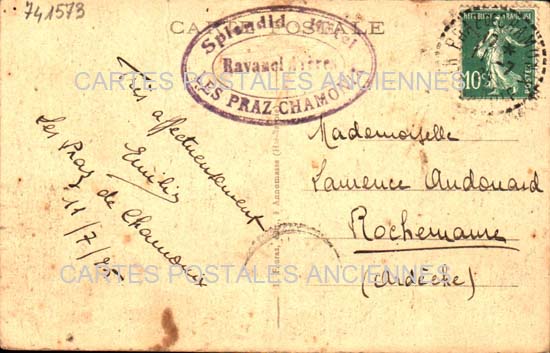 741573
CARTE POSTALE
Splendid Hotel
Ravanel Frères
LES PRAZ-CHAMONIX
REPUBLIQUE FRANÇAISE
10c
POSTES
CARTES POSTALES ANCIENNES
Très affectueusement
Emilie
Les Praz de Chamonix
11/7/25
Mademoiselle
Laurence Audouard
Rochemaure
(Ardèche)
à Annemasse
CARTES POSTALES ANCIENNES